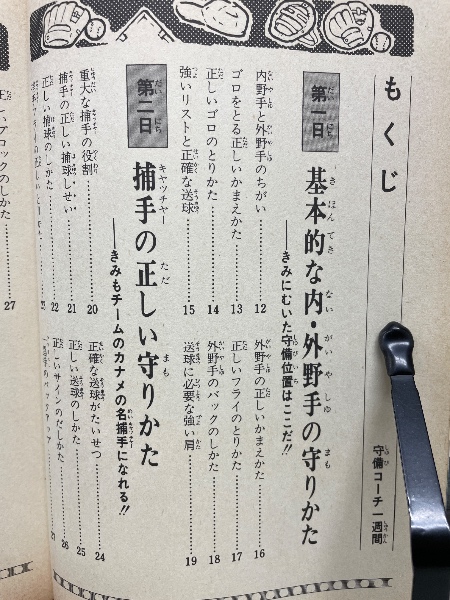 もくじ
守備コーチ一週間
第一日
基本的な内・外野手の守りかた
——きみにむいた守備位置はここだ!!
内野手と外野手のちがい……12
ゴロをとる正しいかまえかた……13
正しいゴロのとりかた……14
強いリストと正確な送球……15
外野手の正しいかまえかた……16
正しいフライのとりかた……17
外野手のバックのしかた……18
送球に必要な強い肩……19
第二日
捕手の正しい守りかた
——きみもチームのカナメの名捕手になれる!!
重大な捕手の役割……20
捕手の正しい捕球しせい……21
正しい捕球のしかた……22
正確な送球がたいせつ……24
正しい送球のしかた……25
正しいサインのだしかた……26
のバックアップ
ブロックのしかた……27